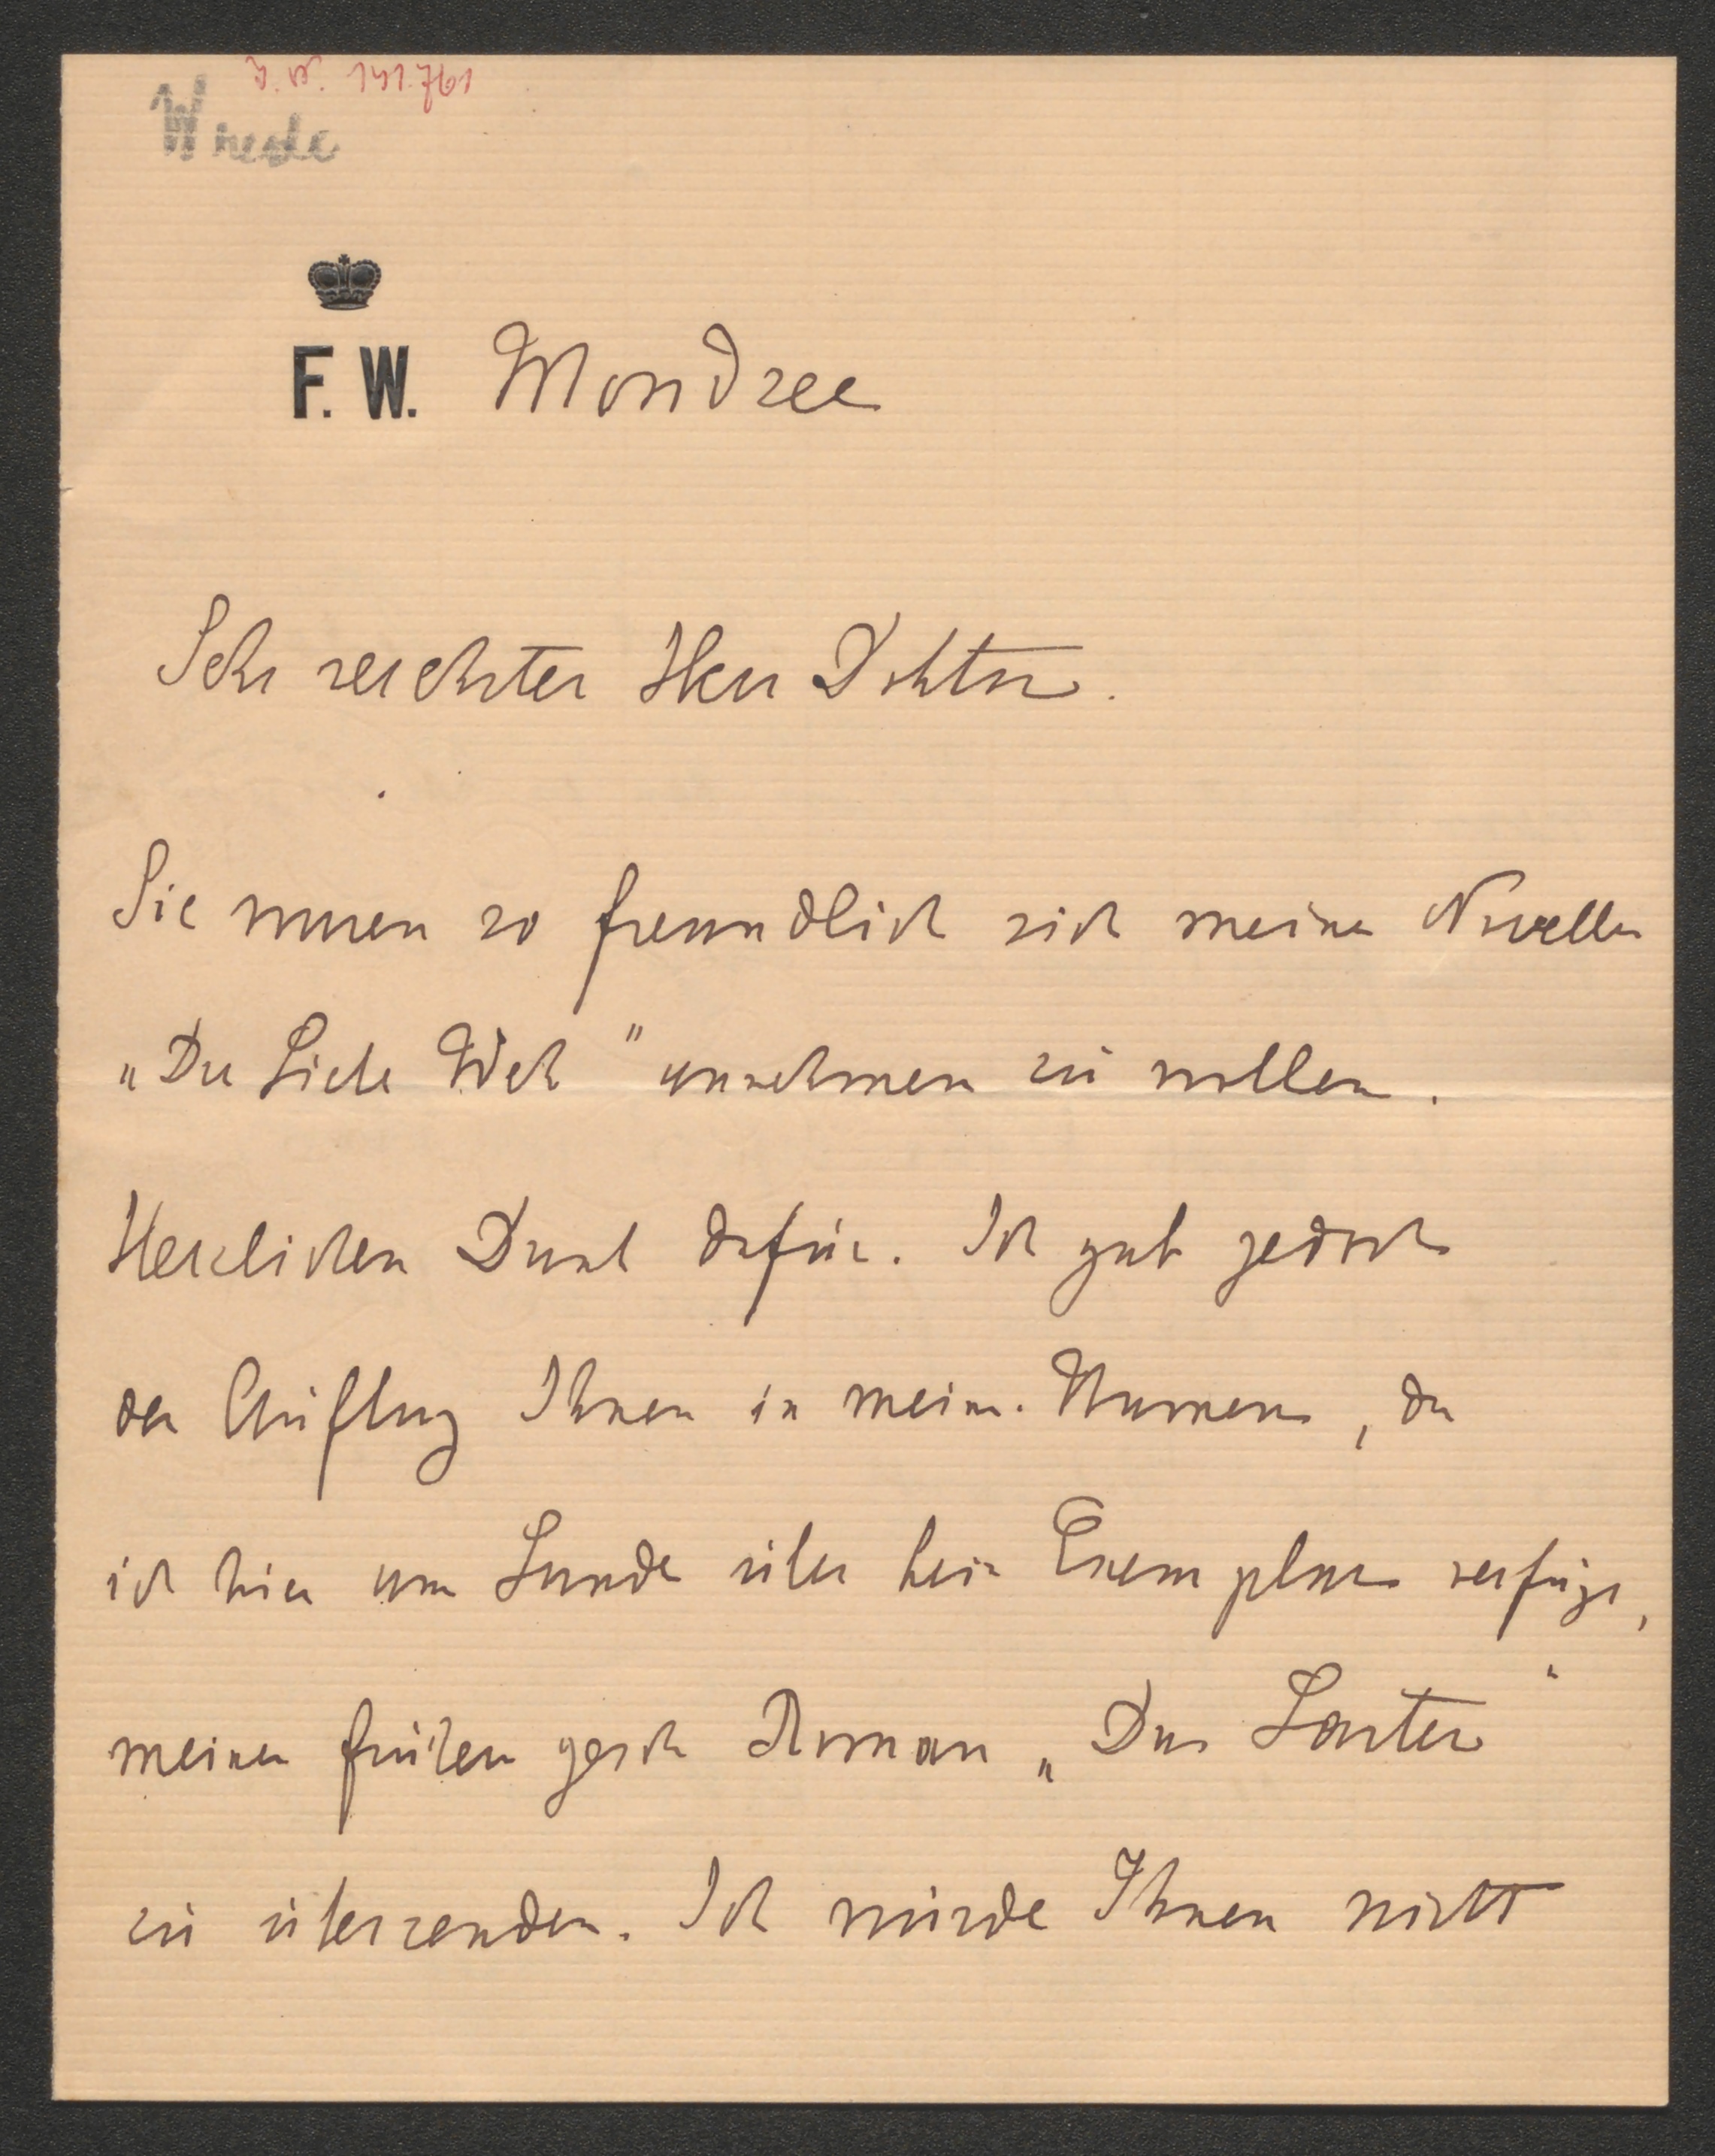 J. N. 141.761
Wrede
F. W. Mondsee
Sehr verehrter Herr Doktor.
Sie waren so freundlich sich meine Novelle
„Die Liebe Welt" annehmen zu wollen.
Herzlichen Dank dafür. Ich gab jedoch
den Auftrag Ihnen in meinem Namen, da
ich hier am Lande über kein Exemplar verfüge,
meinen Roman „Das
zu übersenden. Ich würde Ihnen nicht